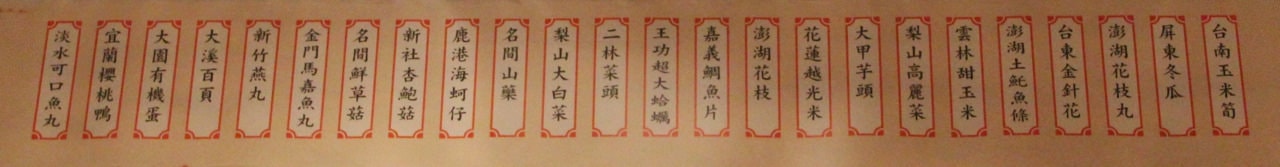 台南玉米筍
屏東冬瓜
澎湖花枝丸
台東金針花
澎湖土魠魚條
雲林甜玉米
梨山高麗菜
大甲芋頭
花蓮越光米
澎湖花枝
嘉義鯛魚片
王功超大蛤蠣
二林菜頭
梨山大白菜
名間山藥
鹿港海蚵仔
新社杏鮑菇
名間鮮草菇
金門馬嘉魚丸
新竹燕丸
大溪百頁
大園有機蛋
宜蘭櫻桃鴨
淡水可口魚丸